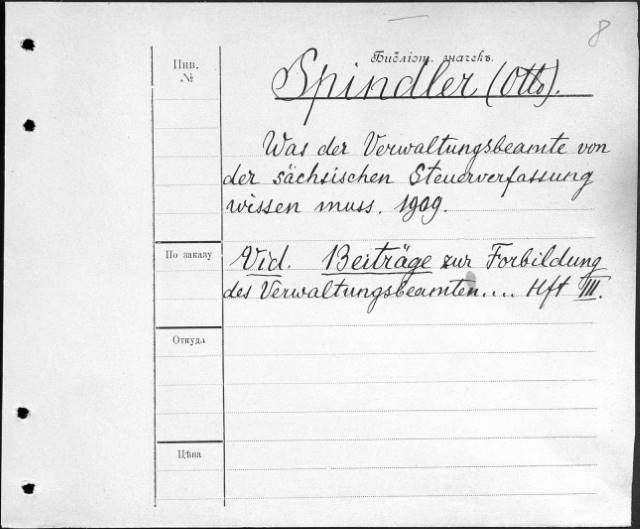 8
Библіот. значекъ.
Инв.
№
Spindler (Otto).
Was der Verwaltungsbeamte von
der sächsischen Steuerverfassung
wissen muss. 1909.
По заказу
Vid. Beiträge zur Forbildung
des Verwaltungsbeamten.... Hft III.
Откуда
Цѣна